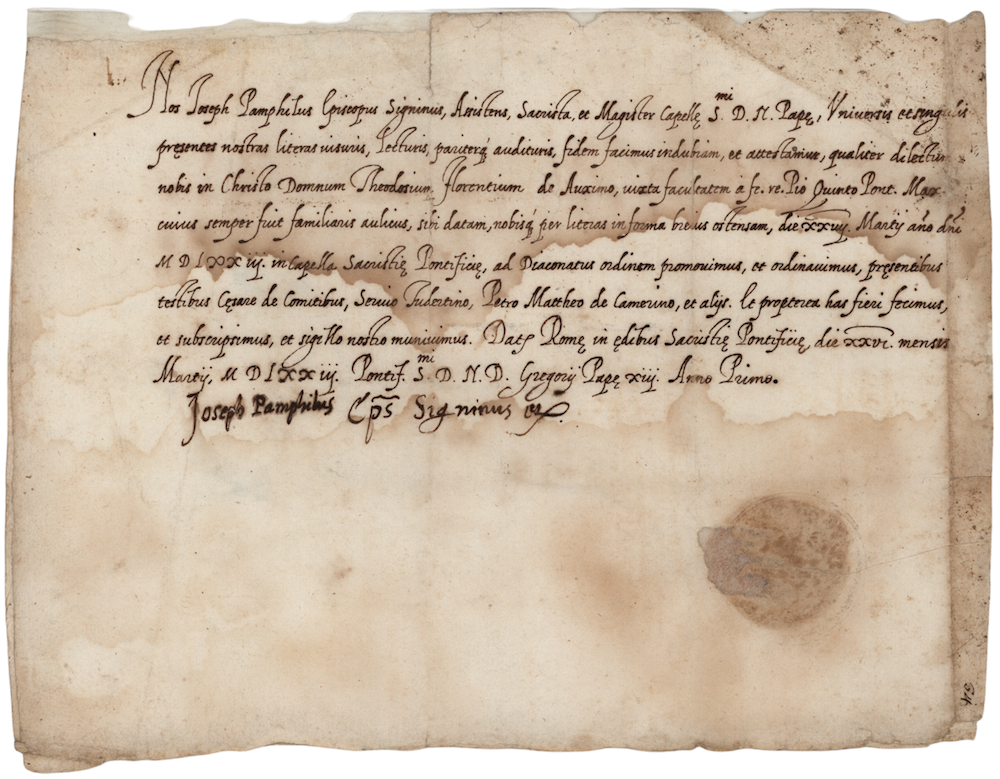 Nos Joseph Pamphilus Episcopus Signinus, Assistens, Sacrista, et Magister Capellę S.mi D. N. Papę, Vniversis et singulis
pręsentes nostras literas uisuris, lecturis, pariterq́ audituris, fidem facimus indubiam, et attestamur, qualiter dilectum
nobis in Christo Domnum Theodosium Florentium de Auximo, iuxta facultatem à fe. re. Pio Quinto Pont. Max
cuius semper fuit familiaris aulicus, sibi datam, nobisq́ per literas in forma breuis ostensam, die xxiij. Martij año dñi
M D L X X iij. in Capella Sacristię Pontificię, ad Diaconatus ordinem promouimus, et ordinauimus, pręsentibus
testibus Cęsare de Comitibus, Seruio Tudertino, Petro Mattheo de Camerino, et alijs. Et propterea has fieri fecimus,
et subscripsimus, et sigillo nostro muniuimus. Dat. Romę in ędibus Sacristię Pontificię, die xxvi. mensis
Martij, M D L X X iij. Pontif. S.mi D. N. D. Gregorij Papę xiij. Anno Primo.
Joseph Pamphilus Ep̃s Signinus